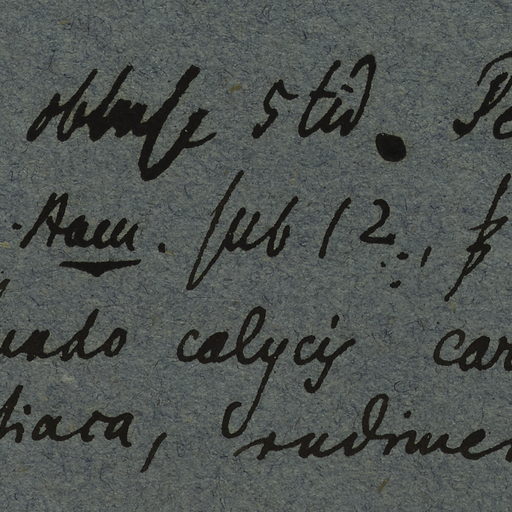 obtuse 5tid. Pe
. Stam. sub 12.,
fundo calycis car
diaca, rudimen